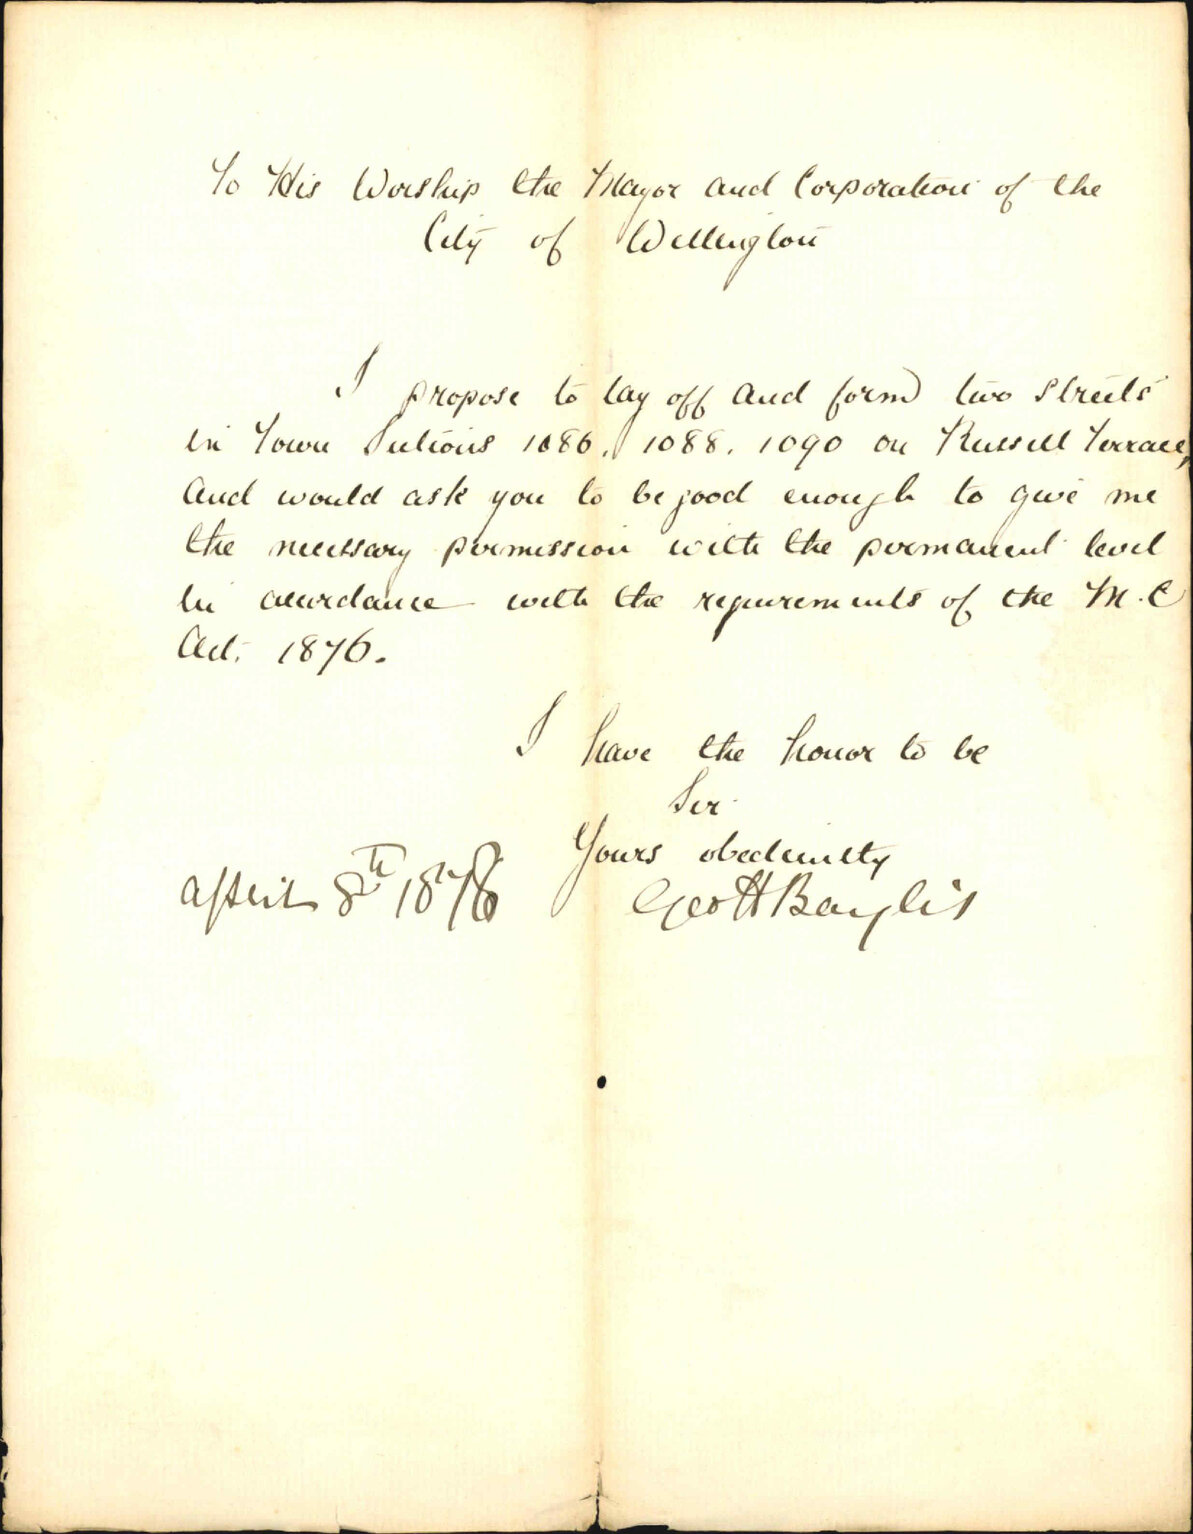 To His Worship the Mayor and Corporation of the
City of Wellington
I propose to lay off and form two streets
in Town Sections 1086, 1088. 1090 on Russell Terrace,
and would ask you to be good enough to give me
the necessary permission with the permanent level
in accordance with the requirements of the M. C
Act. 1876.
I have the honor to be
Sir
Yours obediently
Geo H Baylis
April 8th 1878